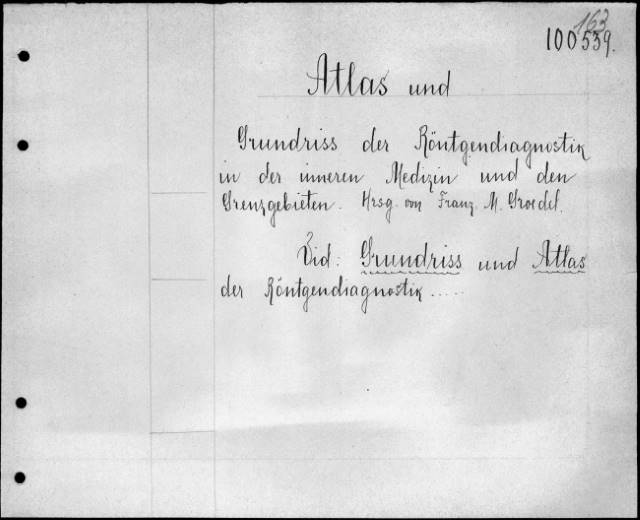 163
100539.
Atlas und
Grundriss der Röntgendiagnostik
in der inneren Medizin und den
Grenzgebieten. Hrsg. von Franz M. Groedel.
Vid: Grundriss und Atlas
der Röntgendiagnostik.....